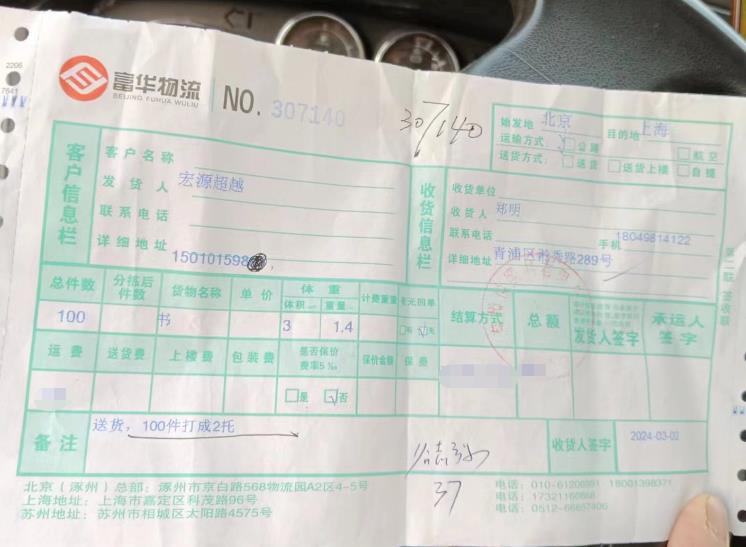 2206
7641
富华物流
BEIJING FUHUA WULIU
NO. 307140
307140
始发地 北京 目的地 上海
运输方式: 公路 航空
送货方式: 送货 送货上楼 自提
客户信息栏
客户名称
发货人 宏源超越
联系电话
详细地址 150101598
收货信息栏
收货单位
收货人 郑明
联系电话 手机 18049814122
详细地址 青浦区 路289号
第二联 签收联
总件数 分拣后件数 货物名称 单价 体重 体积 重量 计费重量 有无回单 结算方式 总额 发货人签字 承运人签字
100 书 3 1.4
运费 送货费 上楼费 包装费 是否保价费率5‰ 保价金额 保费
是 否
备注 送货,100件打成2托
收货人签字 2024-03-02
37
北京(涿州)总部:涿州市京白路568物流园A2区4-5号
上海地址:上海市嘉定区科茂路96号
苏州地址:苏州市相城区太阳路4575号
电话:010-61206991 18001398371
电话:17321160868
电话:0512-66657406